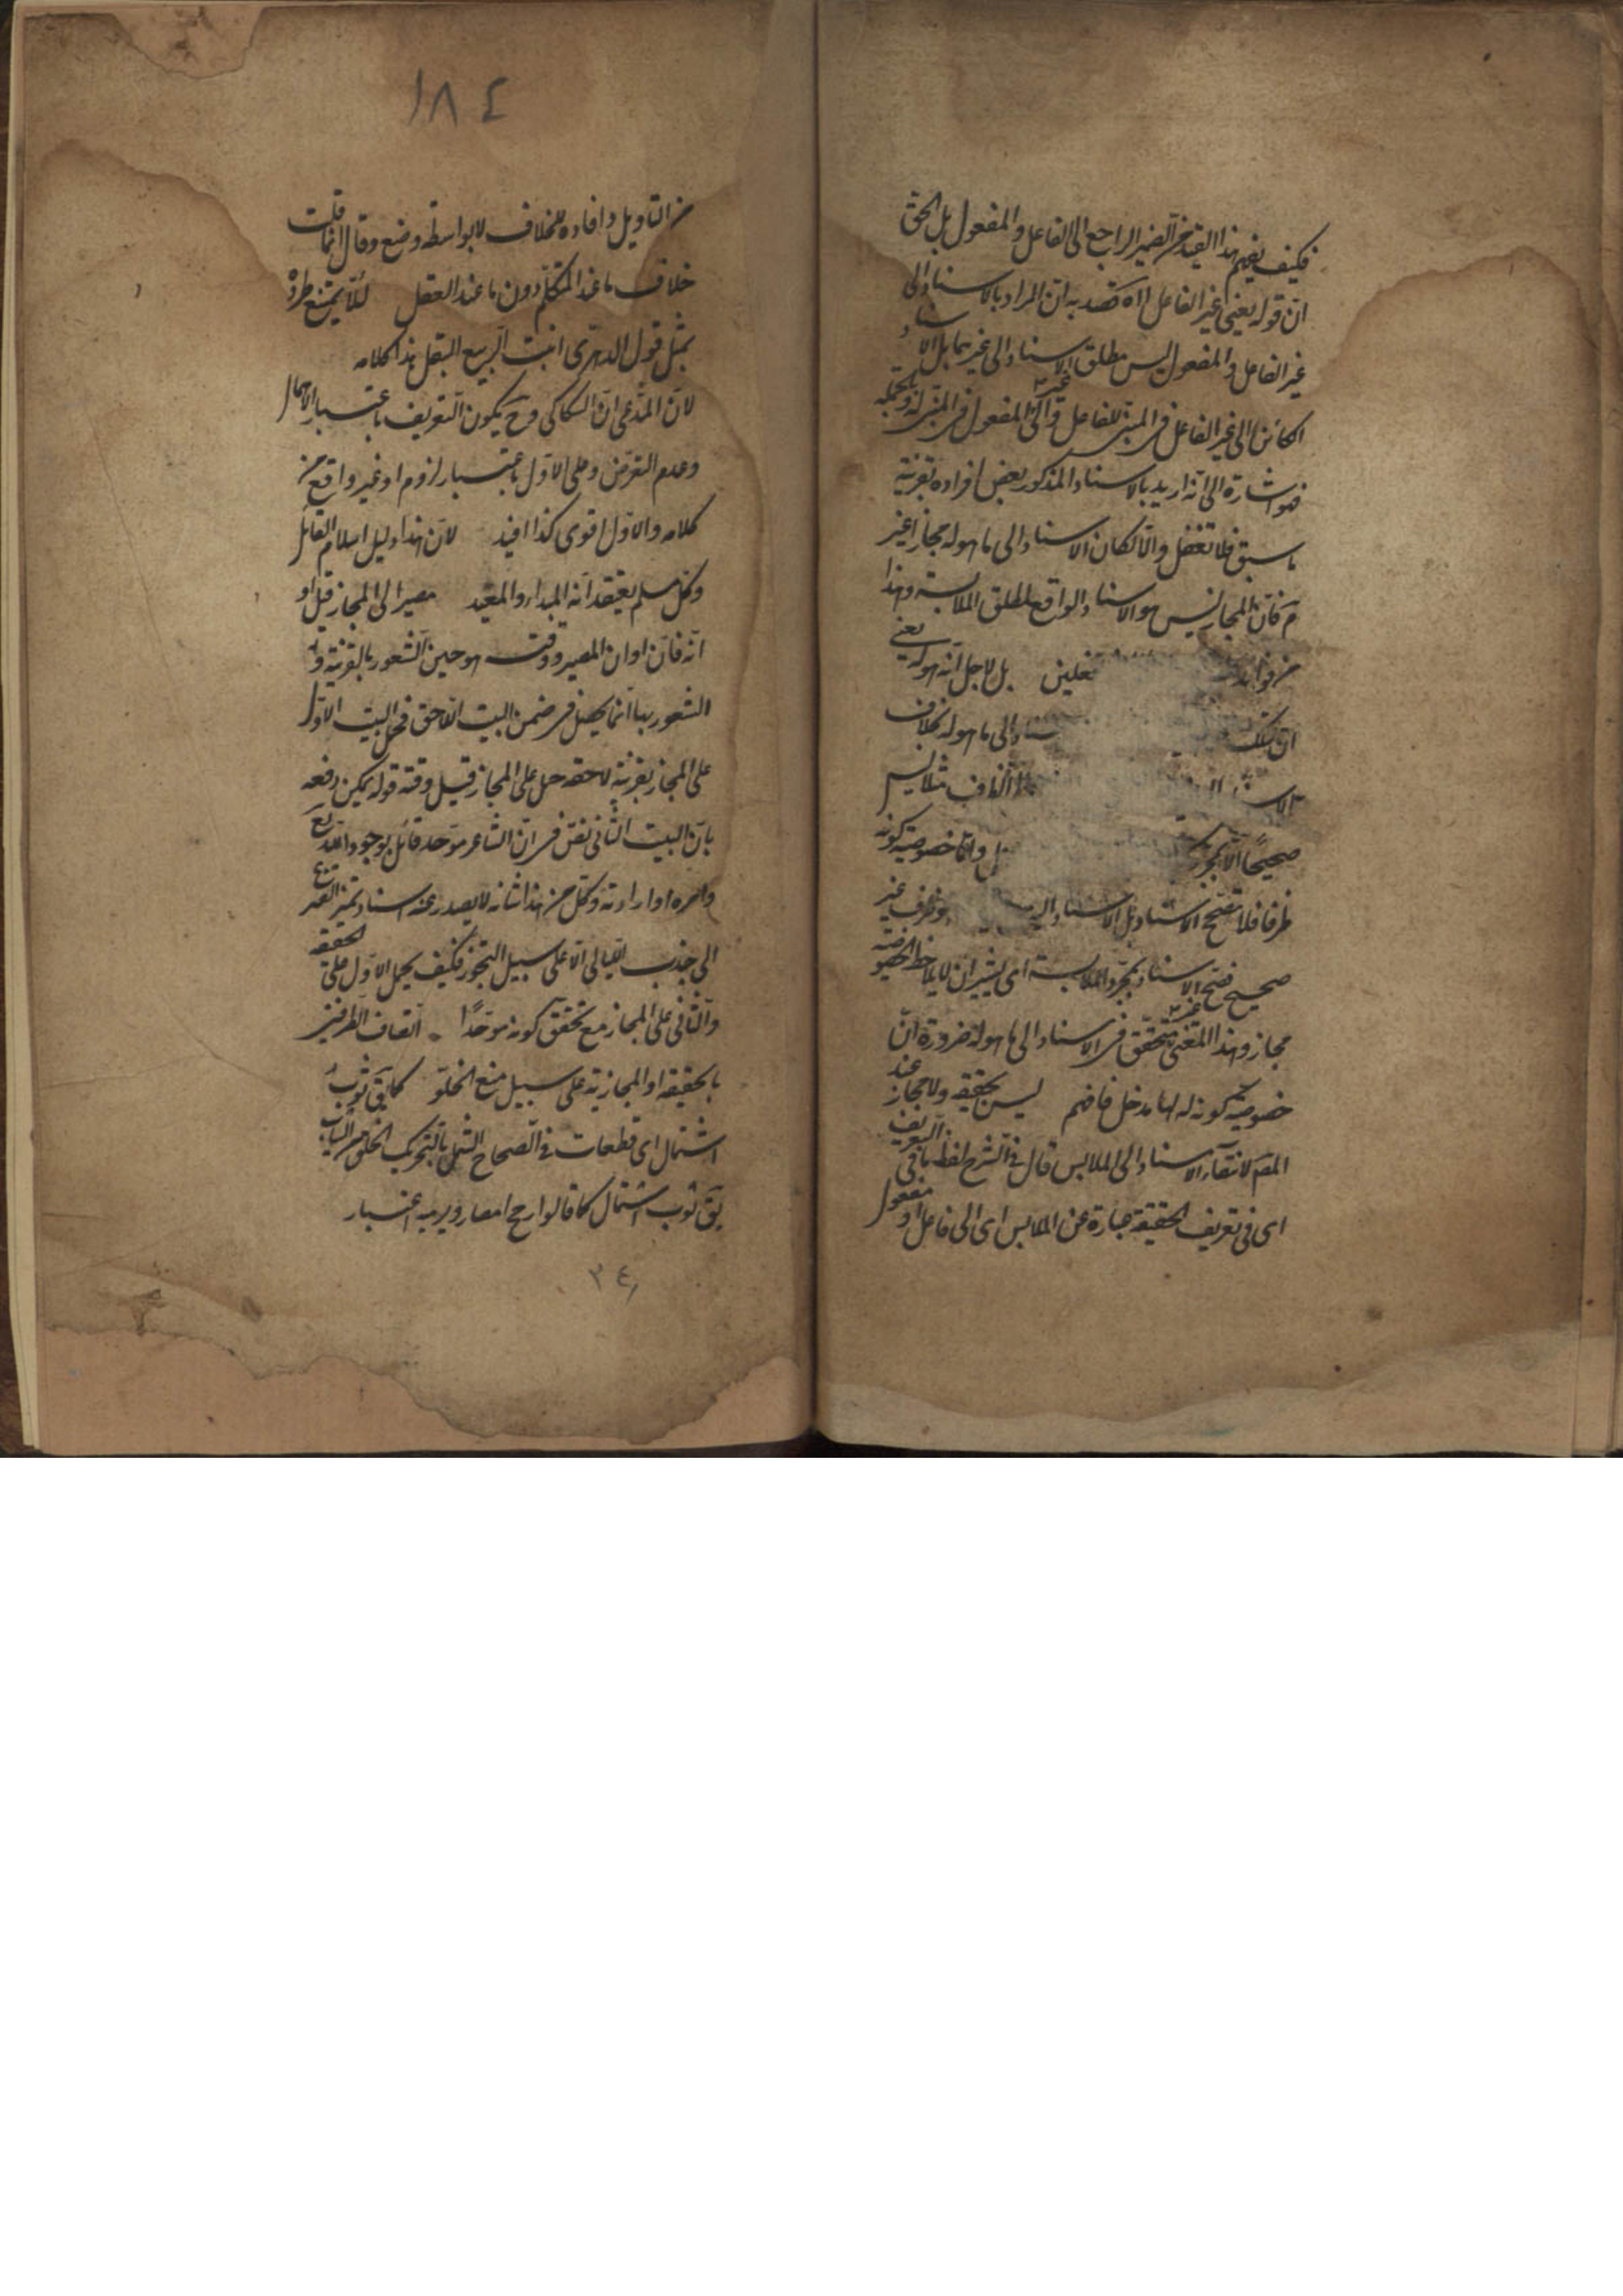 فكيف يفهم هذا القيد من الضمير الراجع الى الفاعل والمفعول بل الحق
ان قوله يعنى غير الفاعل اه قصد به ان المراد بالاسناد الى
غير الفاعل والمفعول ليس مطلق الاسناد الى غيرهما بل الاسناد
الكائن الى غير الفاعل فى المبنى للفاعل والى غير المفعول فى المبنى له
فهو اشارة الى انه اريد بالاسناد المذكور بعض افراده بقرينة
ما سبق فلا تغفل والا لكان الاسناد الى ما هو له مجازا غير
مَ فان المجاز ليس هو الاسناد الواقع لمطلق الملابسة وهذا
من فوايد تعلين بل لاجل انه هو له يعنى
ان تلك الى ما هو له بخلاف
الاسناد الظرف مثلا ليس
صحيحًا الا بمجرد واما خصوصية كونه
ظرفا فلا تصحح الاسناد بل الاسناد الى هو ظرف غير
صحيح فصح الاسناد بمجرد الملابسة اى بشرط ان لا يلاحظ الخصوصية
مجاز وهذا المعنى غير متحقق فى الاسناد الى ما هو له ضرورة ان
خصوصية كونه له لها مدخل فافهم ليس بحقيقة ولا مجاز عند
المصَ لانتفاء الاسناد الى الملابس قال فى الشرح لفظ ما فى التعريف
اى فى تعريف الحقيقة عبارة عن الملابس اى الى فاعل او مفعول
١٨٤
من التاويل وافاده للخلاف لا بواسطة وضع وقال انما قلت
خلاف ما عند المتكلم دون ما عند العقل لئلا يمتنع طرده
بمثل قول الدهرى انبت الربيع البقل هذا كلامه
لان المدعى ان السكاكى وح يكون التعريف باعتبار الاحتمال
وعدم التعرض وعلى الاول باعتبار لزوم او غير واقع من
كلامه والاول اقوى كذا افيد لان هذا دليل اسلام القائل
وكل مسلم يعتقد انه المبداء والمعيد مصيرا الى المجاز قبل او
انه فان اوان المصير ووقت هو حين الشعور بالقرينة و
الشعور بها انما يحصل فى ضمن البيت اللاحق فحمل البيت الاول
على المجاز بقرينة لاحقه حمل على المجاز قبيل وقته قوله يمكن دفعه
بان البيت الثانى نص فى ان الشاعر موحد قائل بوجود الله تع
وامره او ارادته وكل من هذا شانه لا يصدر عنه اسناد تميز القنزع
الى جذب الليالى الا على سبيل التجوز فكيف يحمل الاول على الحقيقة
والثانى على المجاز مع تحقق كونه موحدًا اتصاف الطرفين
بالحقيقة او المجازية على سبيل منع الخلو كما يق ثوب
اشتمال اى قطعات فى الصحاح الشمل بالتحريك الخلق من الثياب
يق ثوب اشتمال كما قالوا رمح اقصار وبرمة اعشار
٢٤